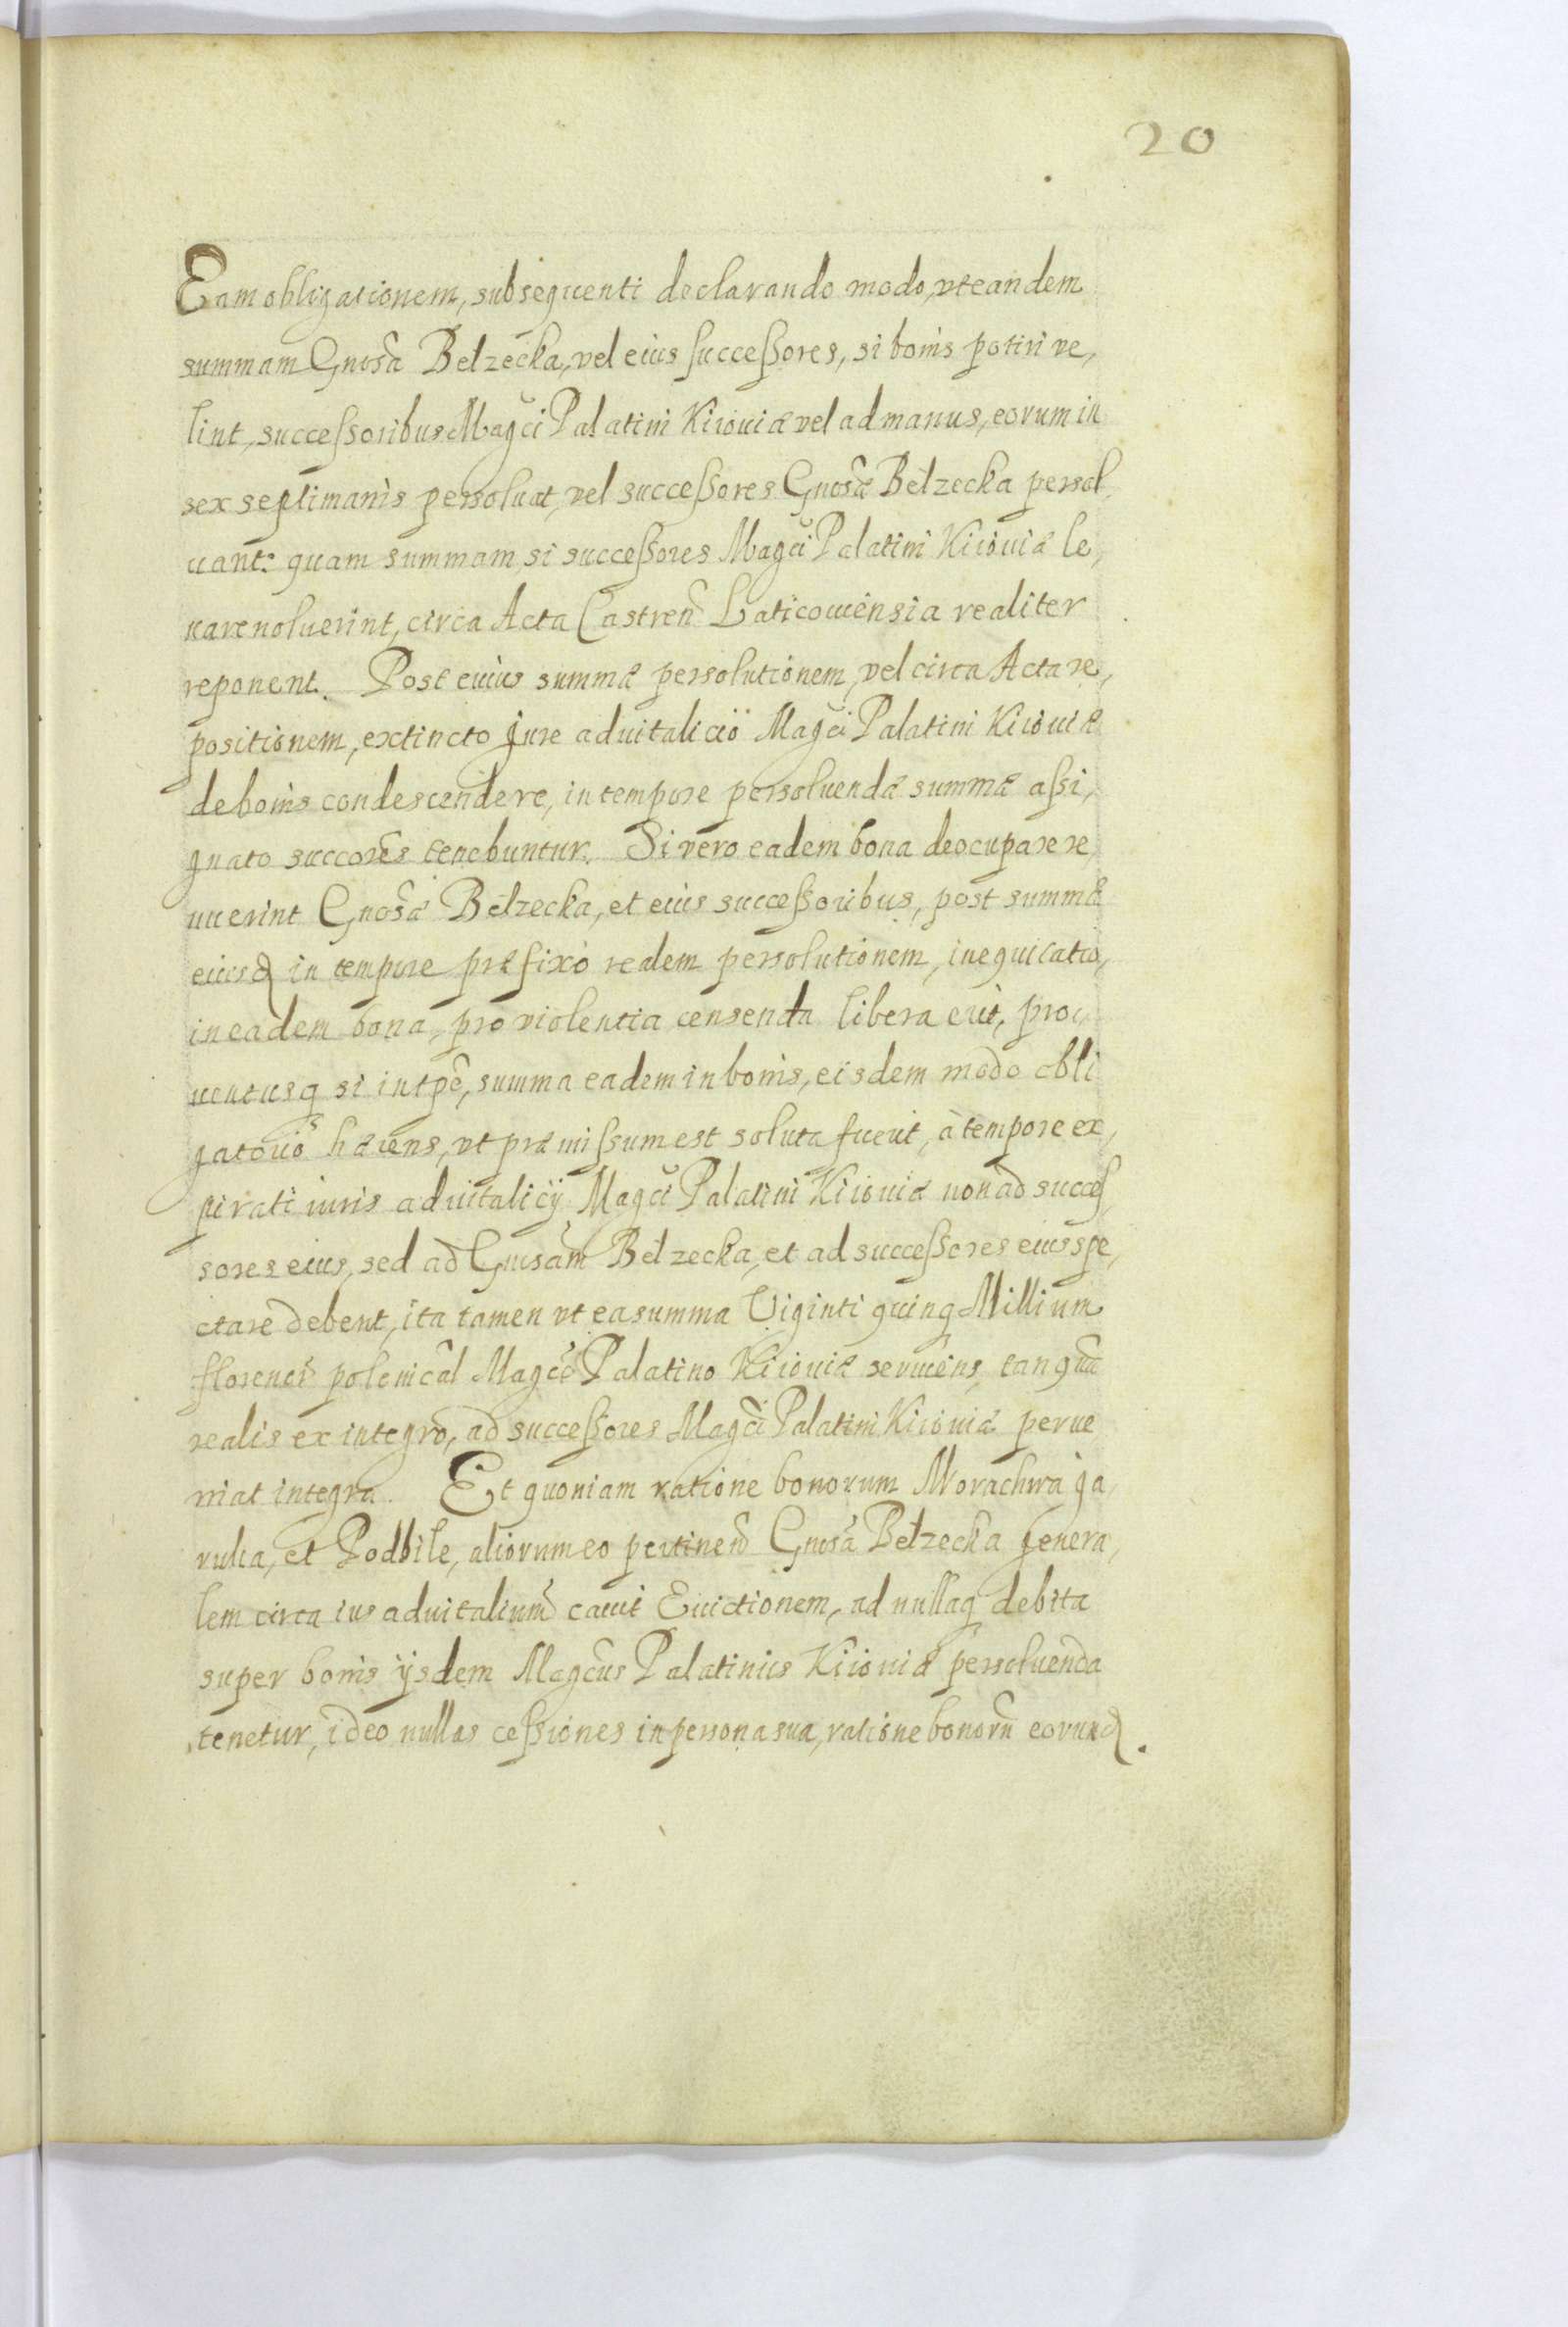 20
Eam obligationem, subsequenti declarando modo, vt eandem
summam Gnosa Belzecka, vel eius successores, si bonis potiri ve,
lint, successoribus Magci Palatini Kijouiæ vel ad manus, eorum in
sex septimanis persoluat, vel successores Gnosæ Bełzecka persol,
uant: quam summam, si successores Magci Palatini Kijouiæ le,
uare noluerint, circa Acta Castren Laticouiensia realiter
reponent. Post cuius summæ persolutionem, vel circa Acta re,
positionem, extincto jure aduitalicio Magci Palatini Kijouiæ
de bonis condescendere, in tempore persoluendæ summæ assi,
gnato succores tenebuntur. Si vero eadem bona deocupare re,
nuerint Gnosæ Bełzecka, et eius successoribus, post summæ
eiusd in tempore præfixo realem persolutionem, inequitatio,
in eadem bona, pro violentia censenda libera erit, pro,
uentusq si intpe, summa eadem in bonis, eisdem modo obli
gatorio hærens, vt præmissum est soluta fuerit, à tempore ex,
pirati iuris aduitalicij Magci Palatini Kijouiæ non ad succes,
sores eius, sed ad Gnosam Bełzecka, et ad successores eius spe,
ctare debent, ita tamen vt ea summa Viginti quinq Millium
florenor polonical Magco Palatino Kijouiæ seruiens, tanqua
realis ex integro, ad successores Magci Palatini Kijouiæ perue
niat integra. Et quoniam ratione bonorum Morachwa ja,
ruha, et Podbile, aliorum eo pertinen Gnosa Bełzecka genera,
lem circa ius aduitalium cauit Euictionem, ad nullaq debita
super bonis ijsdem Magcus Palatinus Kijouiæ persoluenda
tenetur, ideo nullas cessiones in persona sua, ratione bonoru eorund.